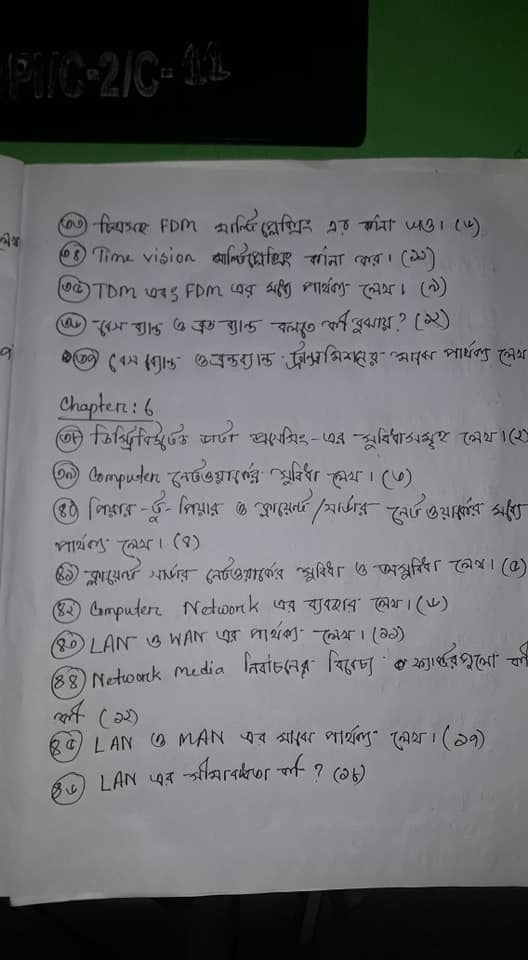 PI/C-2/C-11
৩৩ চিত্রসহ FDM মাল্টিপ্লেক্সিং এর বর্ননা দাও। (৬)
৩৪ Time vision মাল্টিপ্লেক্সিং বর্ননা কর। (১০)
৩৫ TDM এবং FDM এর মধ্যে পার্থক্য লেখ। (৯)
৩৬ বেস ব্যান্ড ও ব্রড ব্যান্ড বলতে কী বুঝায়? (১২)
৩৭ বেস ব্যান্ড ও ব্রডব্যান্ড ট্রান্সমিশনের মাঝে পার্থক্য লেখ
Chapter: 6
৩৮ ডিস্ট্রিবিউটেড ডাটা প্রসেসিং-এর সুবিধাসমূহ লেখ। (২)
৩৯ Computer নেটওয়ার্কের সুবিধা লেখ। (৩)
৪০ পিয়ার-টু-পিয়ার ও ক্লায়েন্ট/সার্ভার নেটওয়ার্কের মধ্যে
পার্থক্য লেখ। (৪)
৪১ ক্লায়েন্ট সার্ভার নেটওয়ার্কের সুবিধা ও অসুবিধা লেখ। (৫)
৪২ Computer Network এর ব্যবহার লেখ। (৬)
৪৩ LAN ও WAN এর পার্থক্য লেখ। (১১)
৪৪ Network media নির্বাচনের বিবেচ্য ফ্যাক্টরগুলো কী
কী (১২)
৪৫ LAN ও MAN এর মাঝে পার্থক্য লেখ। (১৭)
৪৬ LAN এর সীমাবদ্ধতা কী? (১৮)